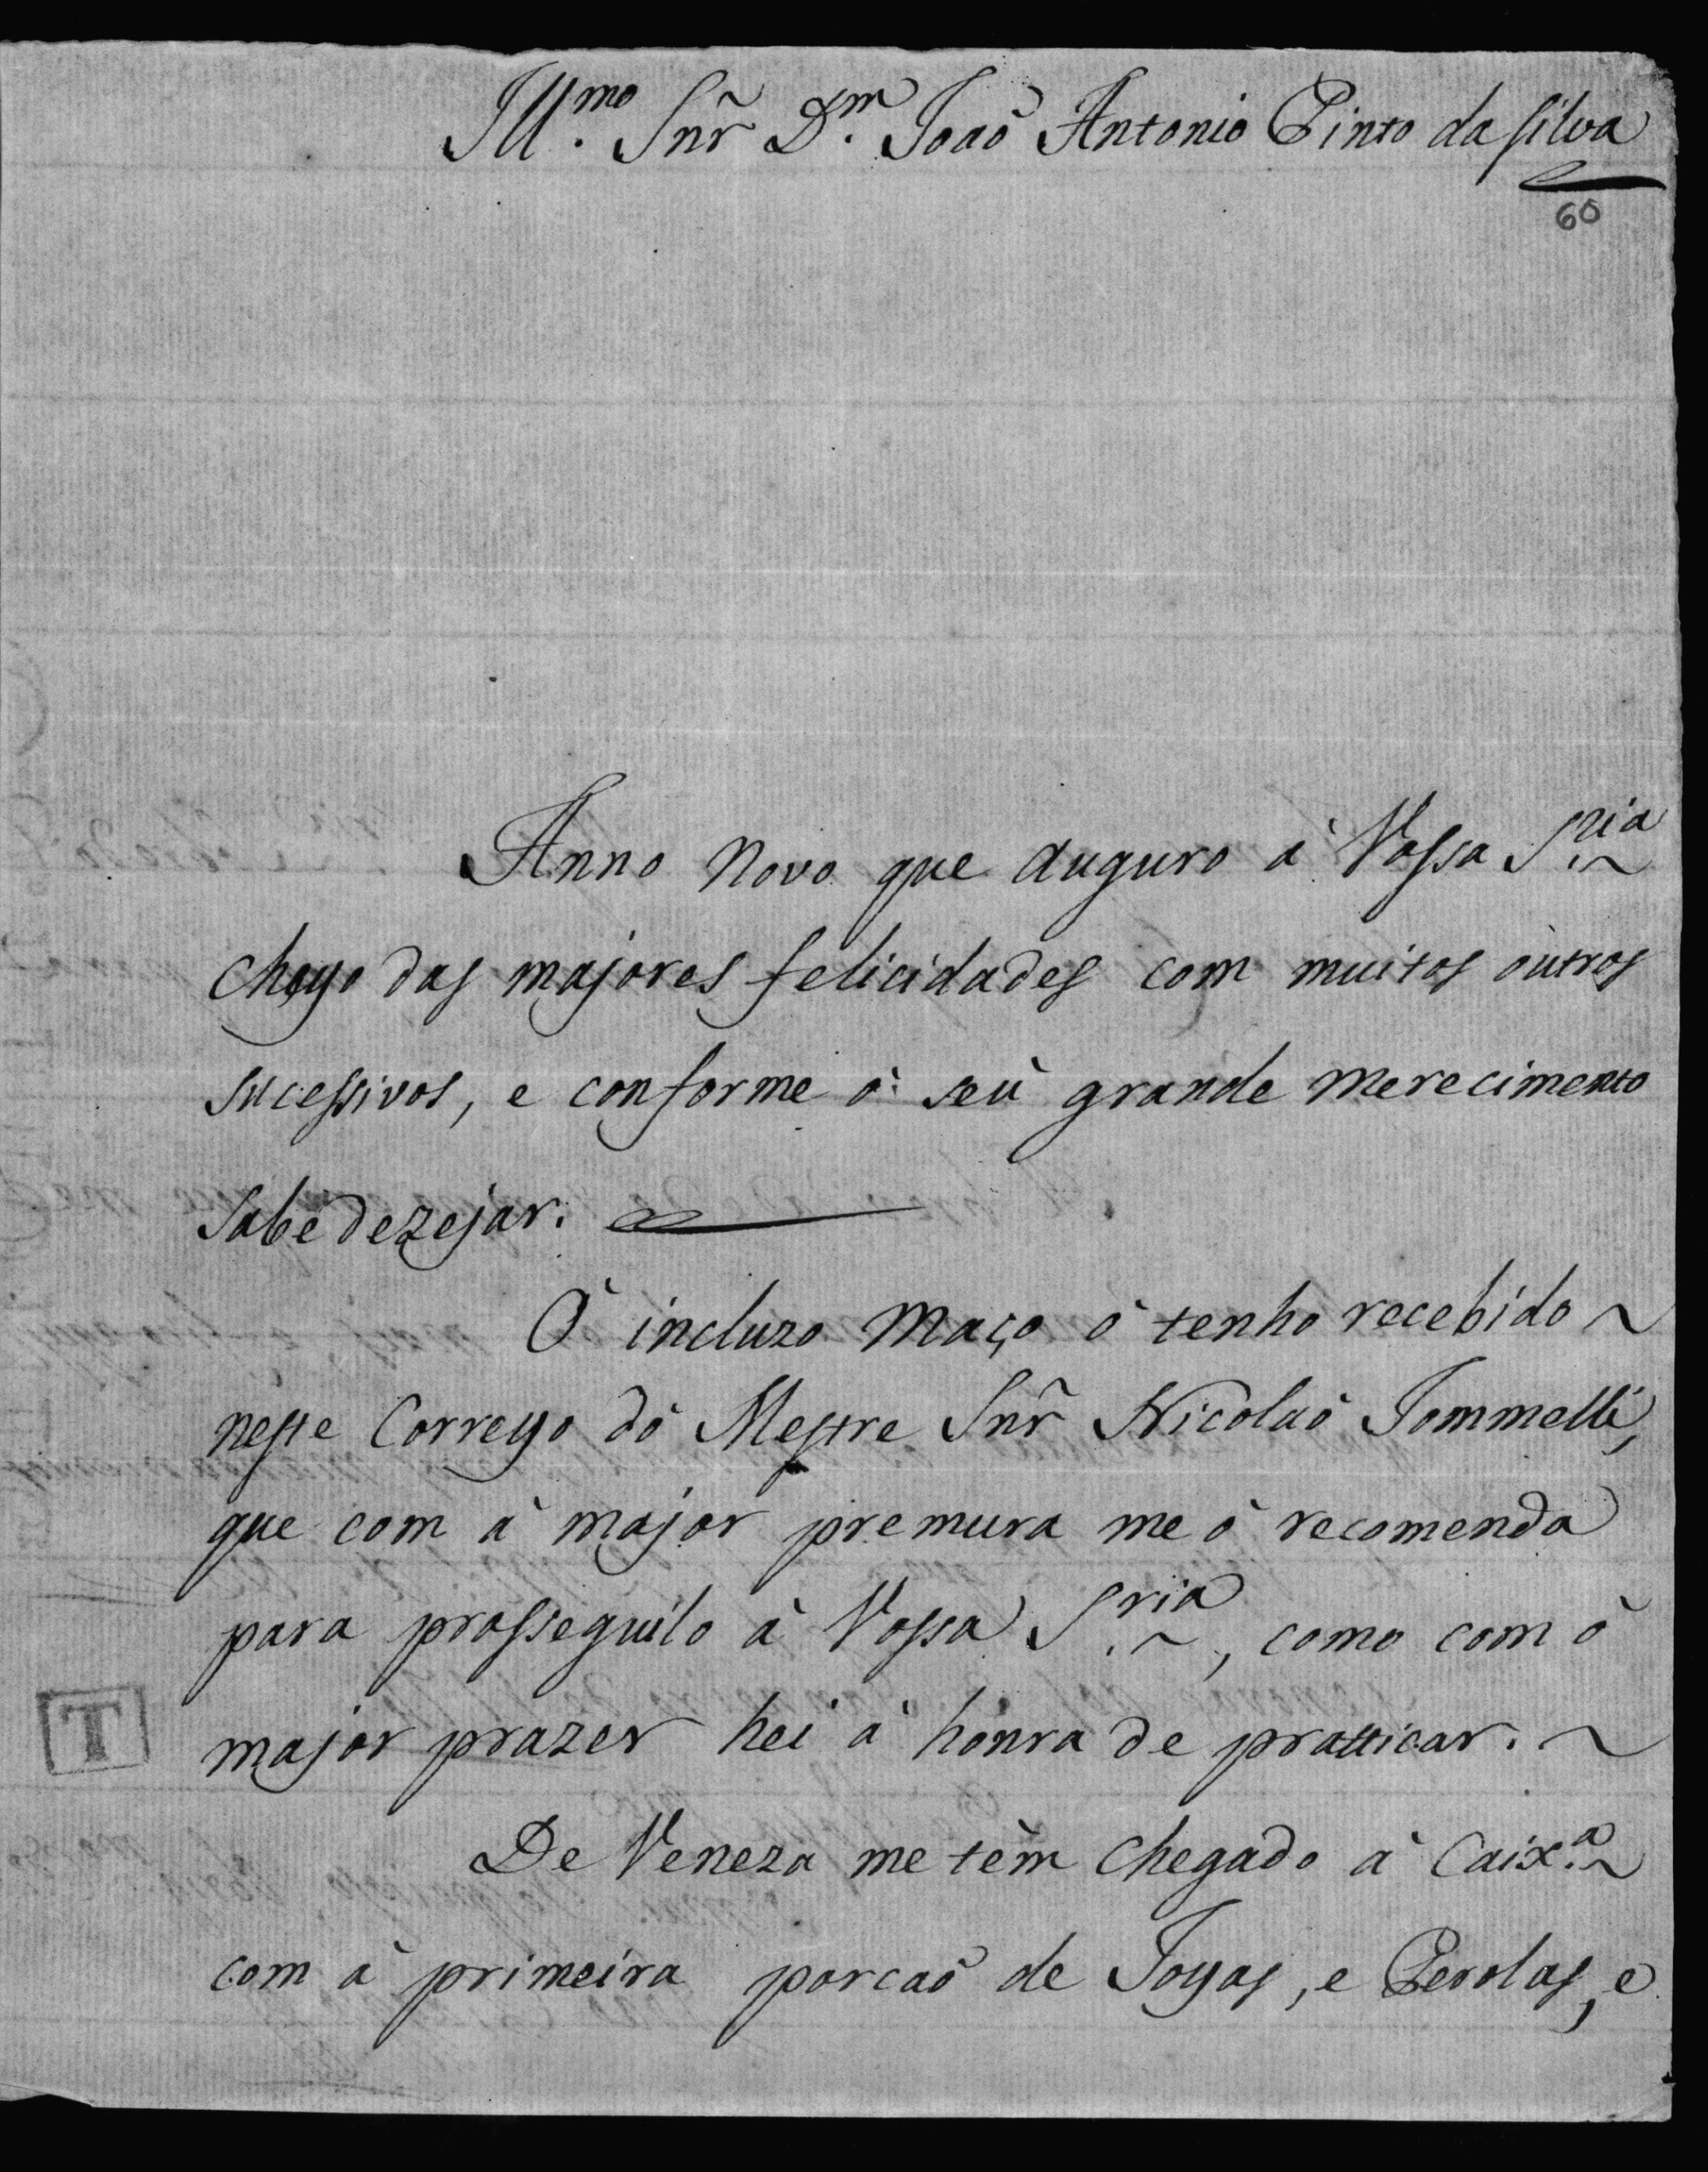 Ill.mo Snr̃ D.m Joaõ Antonio Pinto da Silva
60
Anno Novo que auguro à Vossa S.ria
cheyo das majores felicidades com muitos òutros
sucessivos, e conforme ò seù grande merecimento
sabe dezejar.
Ò incluzo Maço ò tenho recebido
neste Correyo dò Mestre Snr̃ Nicolaò Jommelli,
que com à major premura me ò recomenda
para prosseguilo à Vossa S.ria, como com ò
major prazer hei à honra de pratticar.
De Veneza me tèm chegado à Caix.a
com à primeira porcaõ de Joyas, e Perolas, e
T